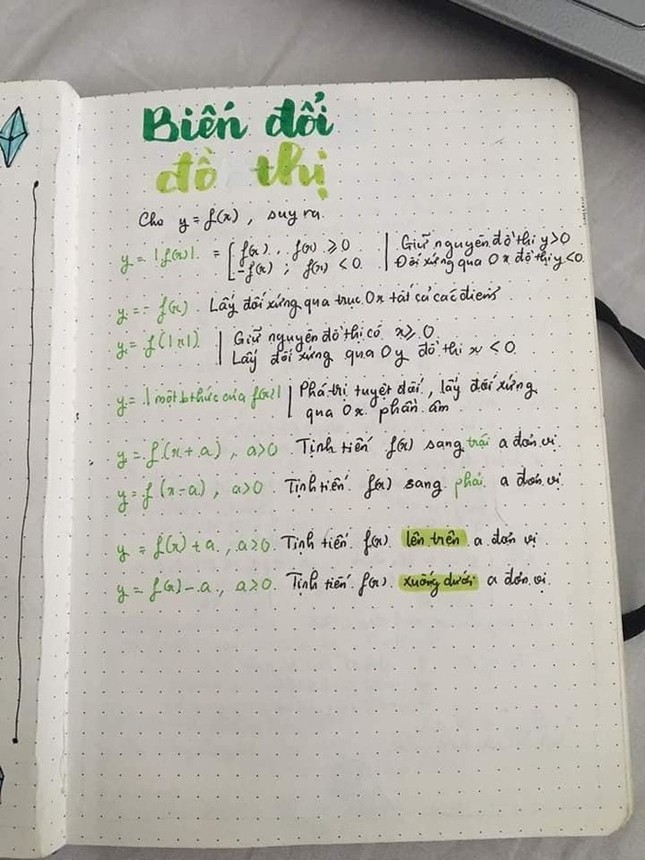 Biến đổi
đồ thị
Cho y = f(x), suy ra
y = |f(x)|. = [ f(x), f(x) ≥ 0 | Giữ nguyên đồ thị y>0
-f(x); f(x) < 0. | Đối xứng qua Ox đồ thị y<0.
y = - f(x) Lấy đối xứng qua trục Ox tất cả các điểm
y = f(|x|) | Giữ nguyên đồ thị có x ≥ 0.
Lấy đối xứng qua Oy đồ thị x < 0.
y = | một b thức của f(x)| | Phá trị tuyệt đối, lấy đối xứng
qua Ox phần âm
y = f(x + a), a>0 Tịnh tiến f(x) sang trái a đơn vị
y = f(x - a), a>0. Tịnh tiến f(x) sang phải a đơn vị
y = f(x) + a, a>0. Tịnh tiến f(x) lên trên a đơn vị
y = f(x) - a, a>0. Tịnh tiến f(x) xuống dưới a đơn vị